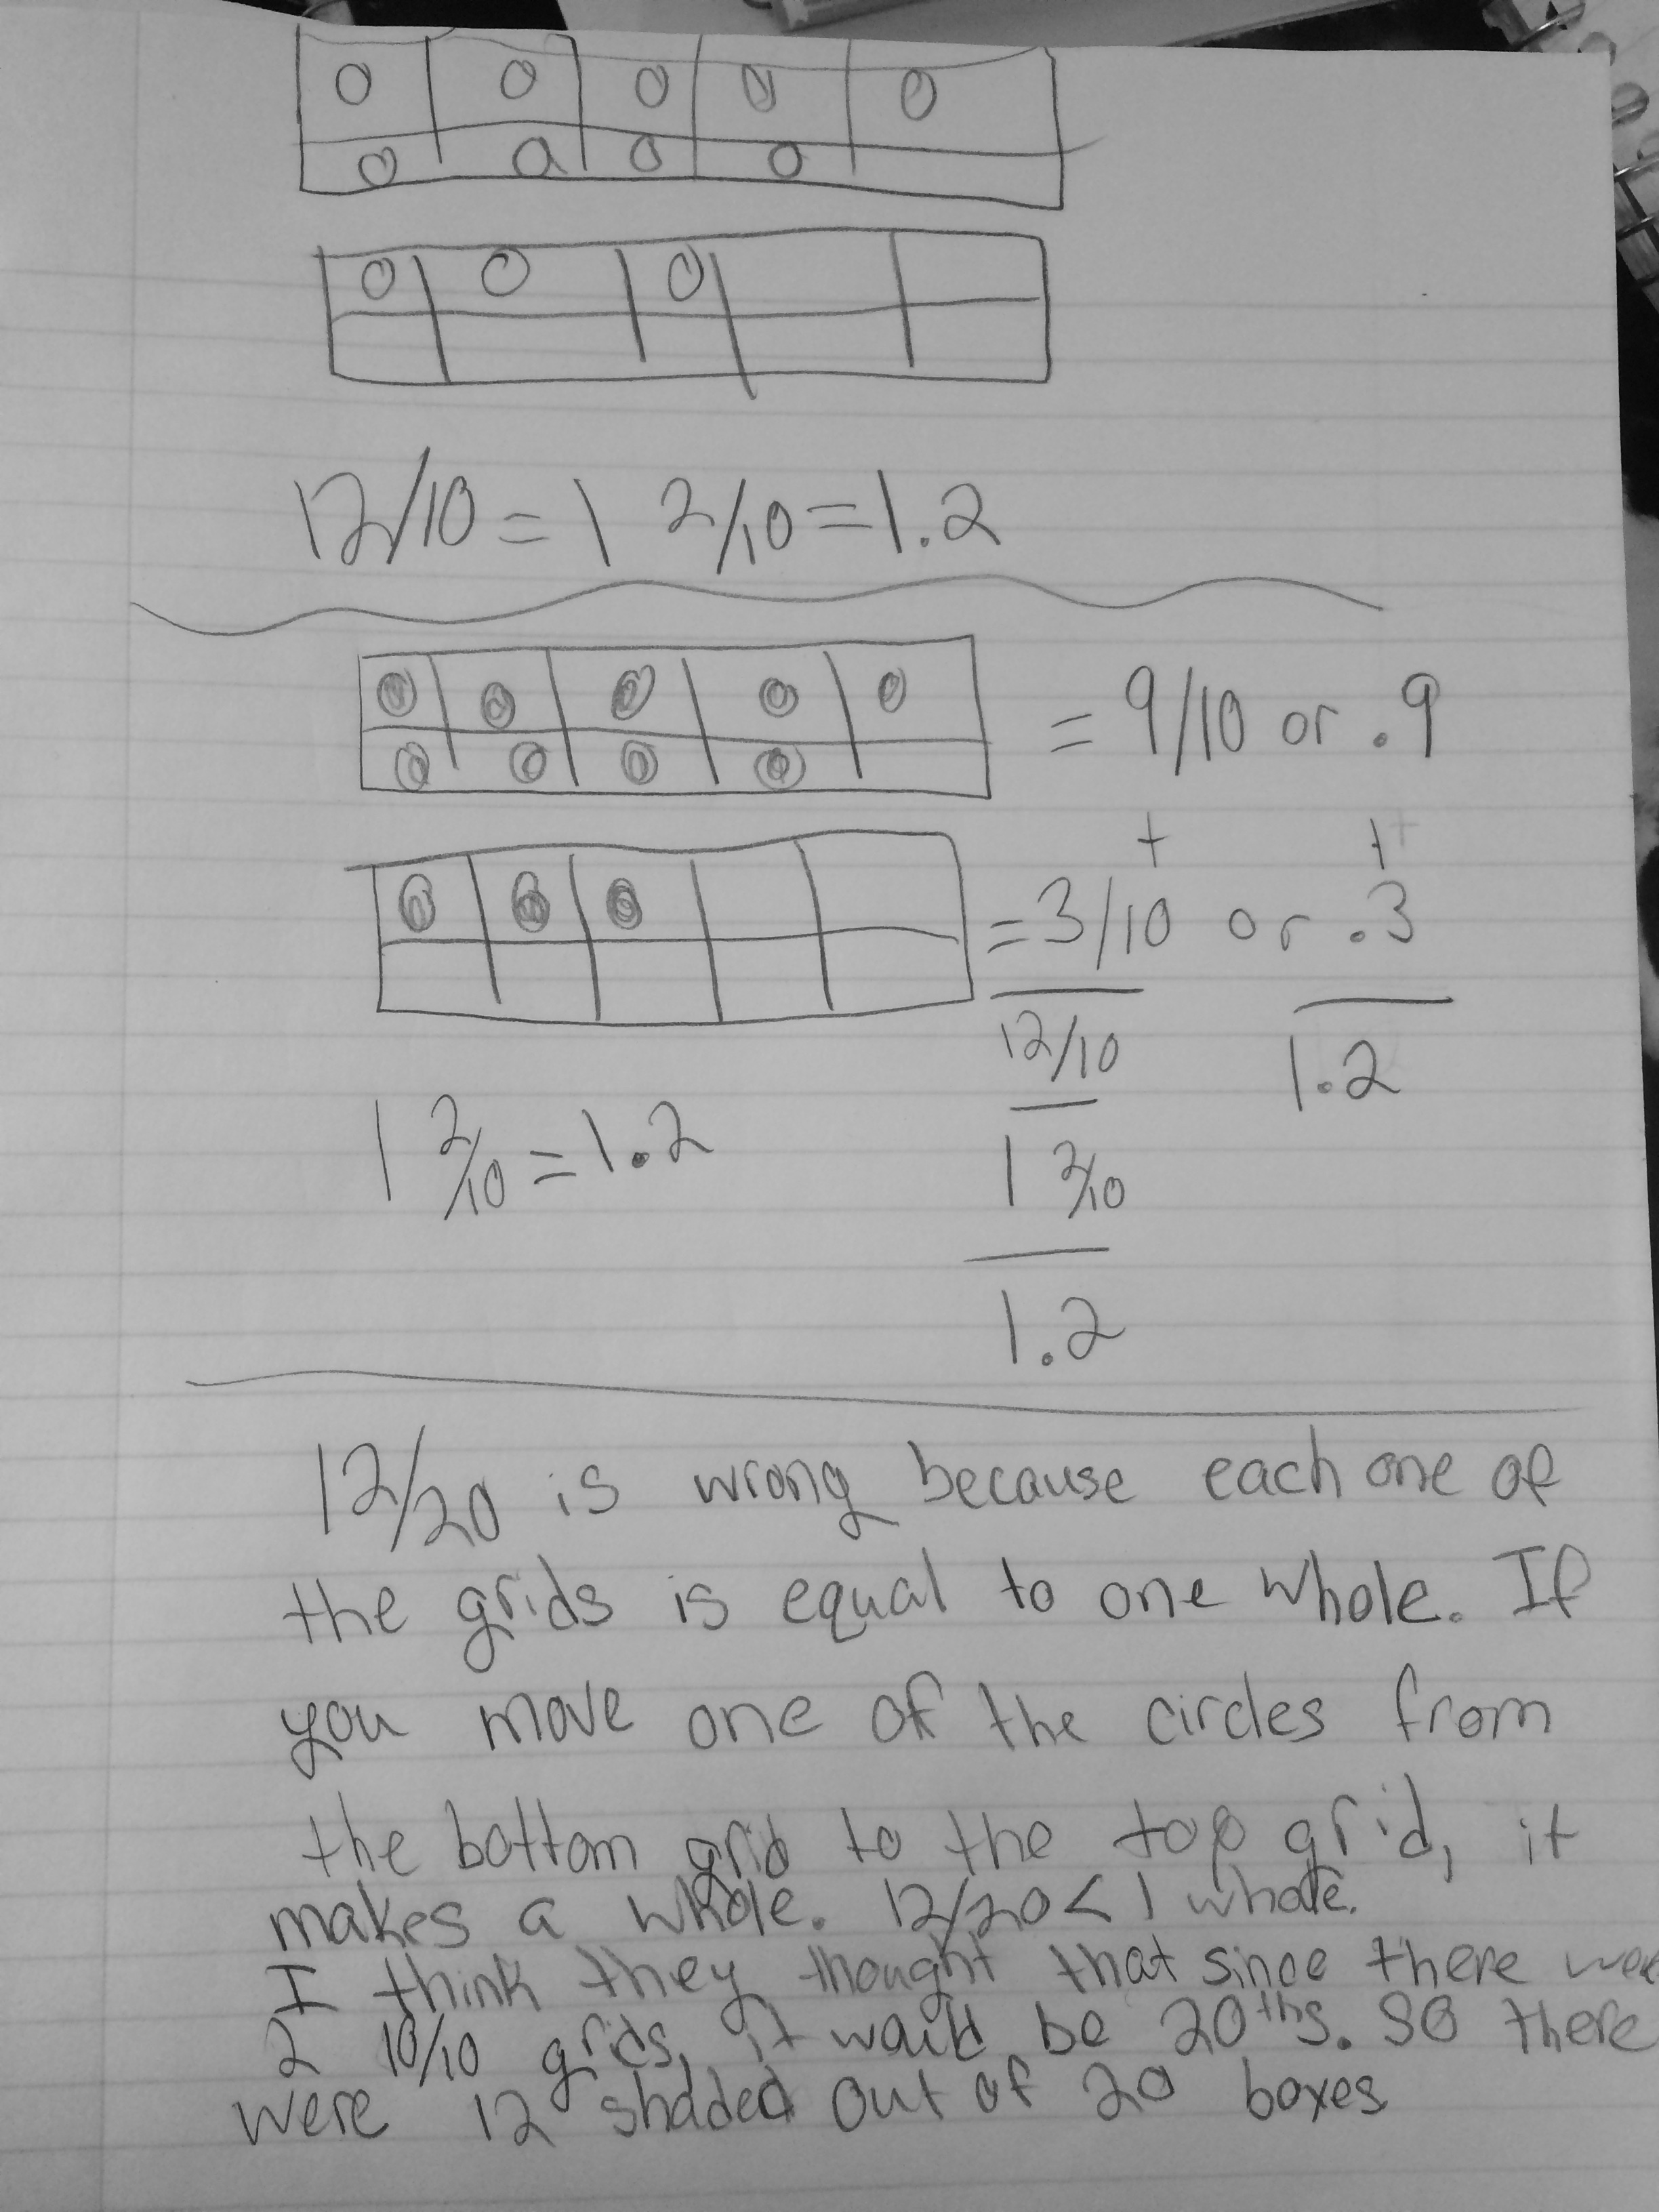 12/10 = 1 2/10 = 1.2
= 9/10 or .9
+ +
= 3/10 or .3
12/10 1.2
1 2/10 = 1.2 1 2/10
1.2
12/20 is wrong because each one of
the grids is equal to one whole. If
you move one of the circles from
the bottom grid to the top grid, it
makes a whole. 12/20 < 1 whole.
I think they thought that since there were
2 10/10 grids, it would be 20ths. So there
were 12 shaded out of 20 boxes